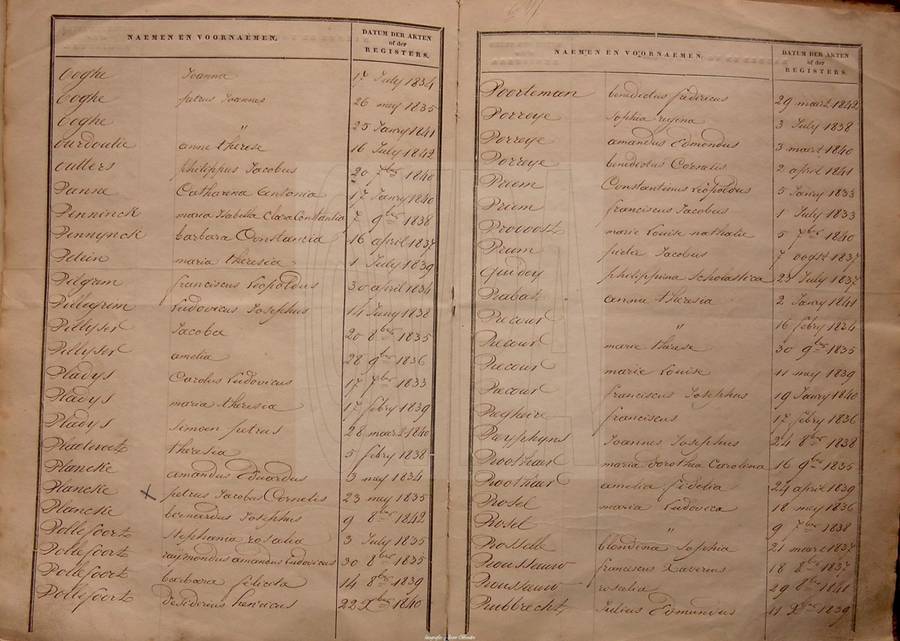 NAEMEN EN VOORNAEMEN.
DATUM DER AKTEN
of der
REGISTERS.
Ooghe Joanna 17 July 1834
Ooghe petrus Joannes 26 mey 1835
Ooghe " 25 Janry 1841
Ourdoulie anne therese 16 July 1842
Outters philippus Jacobus 20 7bre 1840
Panne Catharena Antonia 17 Janry 1840
Penninck maria Isabella Clara Constantia 7 9bre 1838
Pennynck barbara Constancia 16 april 1837
maria theresia 1 July 1839
Pilgram franciscus Leopoldus 30 april 1834
Pillegrem Ludovicus Josephus 14 Juny 1838
Pillyser Jacoba 20 8bre 1835
Pillyser amelia 28 9bre 1836
Pladys Carolus Ludovicus 17 7bre 1833
Pladys maria theresia 17 febry 1839
Pladys simoen petrus 28 maert 1840
theresia 5 febry 1838
Plancke amandus Eduardus 3 mey 1834
Plancke x petrus Jacobus Cornelis 23 mey 1835
Plancke bernardus Josephus 9 8bre 1842
Pollefoort stephania rosalia 3 July 1835
Pollefoort raymondus amandus Ludovicus 30 8bre 1835
Pollefoort barbara felicita 14 8bre 1839
Pollefoort desiderius henricus 22 Xbre 1840
NAEMEN EN VOORNAEMEN.
DATUM DER AKTEN
of der
REGISTERS.
Poorteman benedictus fredericus 29 maert 1842
Porreye Sophia regena 3 July 1838
Porreye amandus Edmondus 3 maert 1840
Porreye benedictus Cornelis 2 april 1841
Priem Constantinus Leopoldus 5 Janry 1833
Priem franciscus Jacobus 1 July 1833
Provoost marie Louise nathalie 5 7bre 1840
pieter Jacobus 7 oogst 1837
Quidoy philippina Scholastica 23 July 1837
Rabak anna theresia 2 Janry 1841
Recour " 16 febry 1834
Recour marie therese 30 9bre 1835
Recour marie Louise 11 mey 1839
Recour franciscus Josephus 19 Janry 1840
franciscus 17 febry 1836
Joannes Josephus 24 8bre 1838
Roothaert maria dorothea Carolina 16 9bre 1835
Roothaert amelia fidelia 24 april 1839
Rosel maria Ludovica 18 mey 1836
Rosel " 9 7bre 1838
Rossel blondina Sophia 21 maert 1837
Roussauw franciscus Xaverius 18 8bre 1837
Roussauw rosalia 29 8bre 1841
Rubbrecht Julius Edmondus 11 Xbre 1839